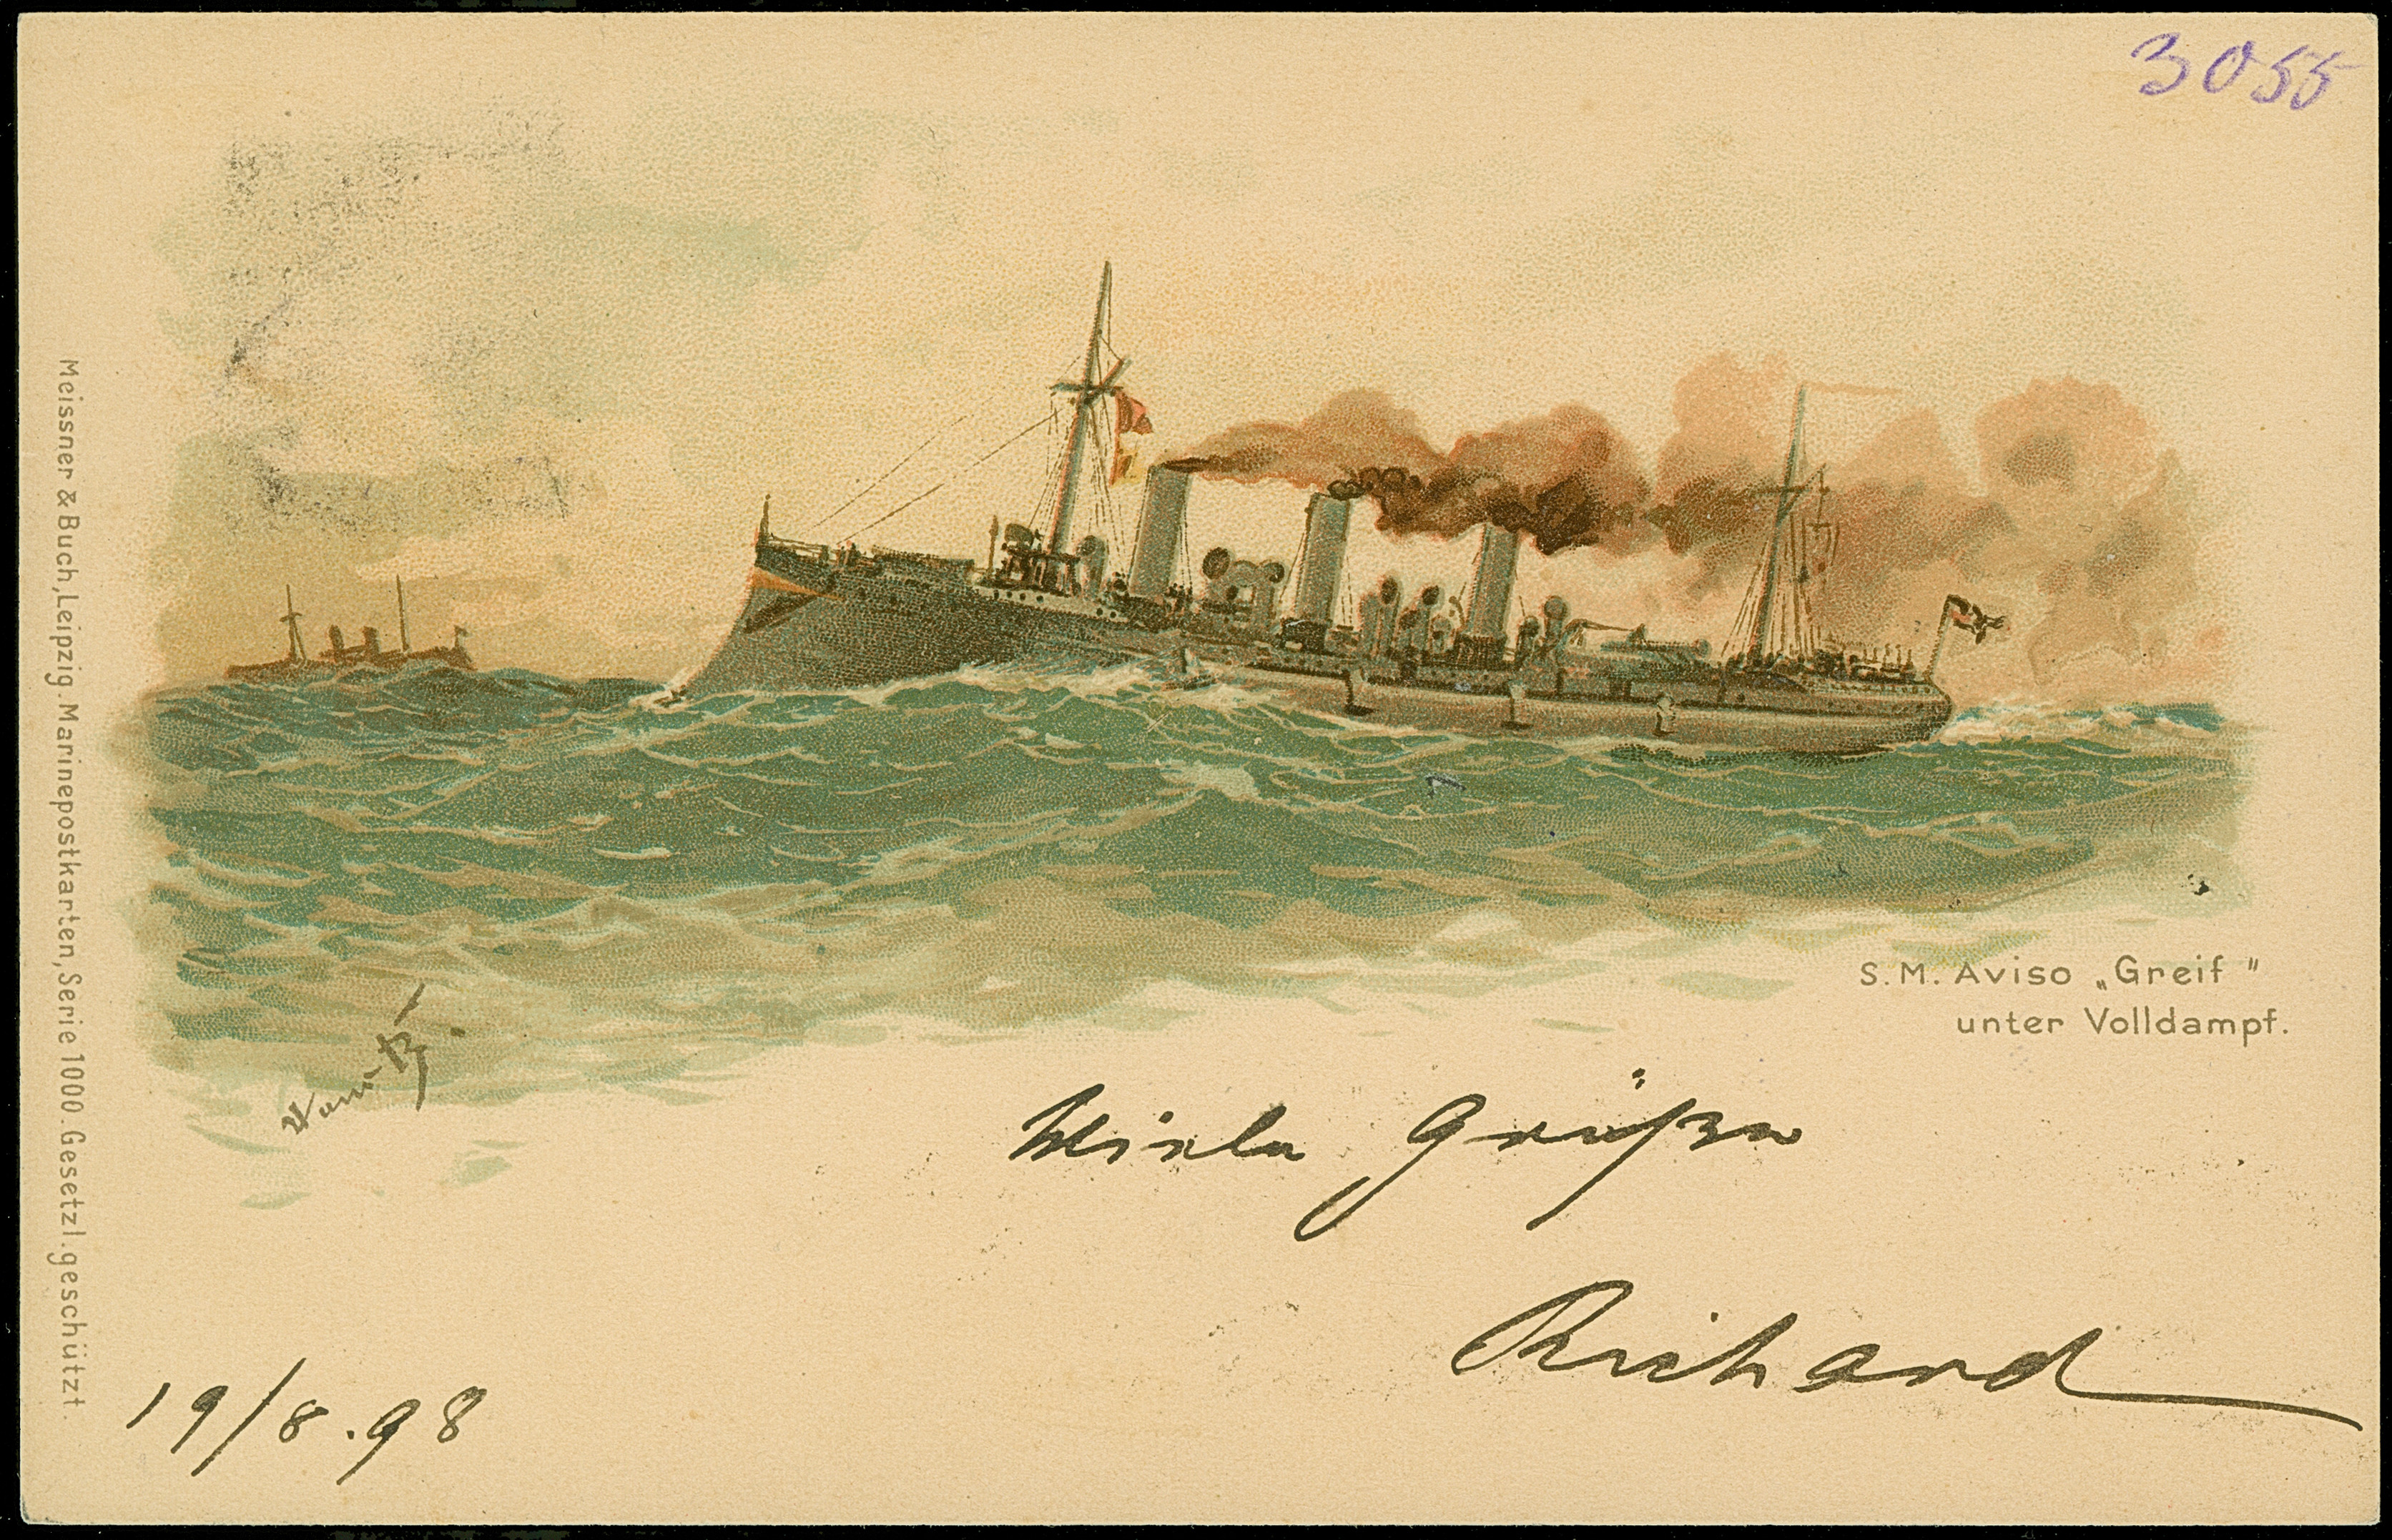 3055
Meissner & Buch, Leipzig. Marinepostkarten, Serie 1000. Gesetzl. geschützt.
S. M. Aviso „Greif"
unter Volldampf.
Viele Grüße
Richard
19/8.98